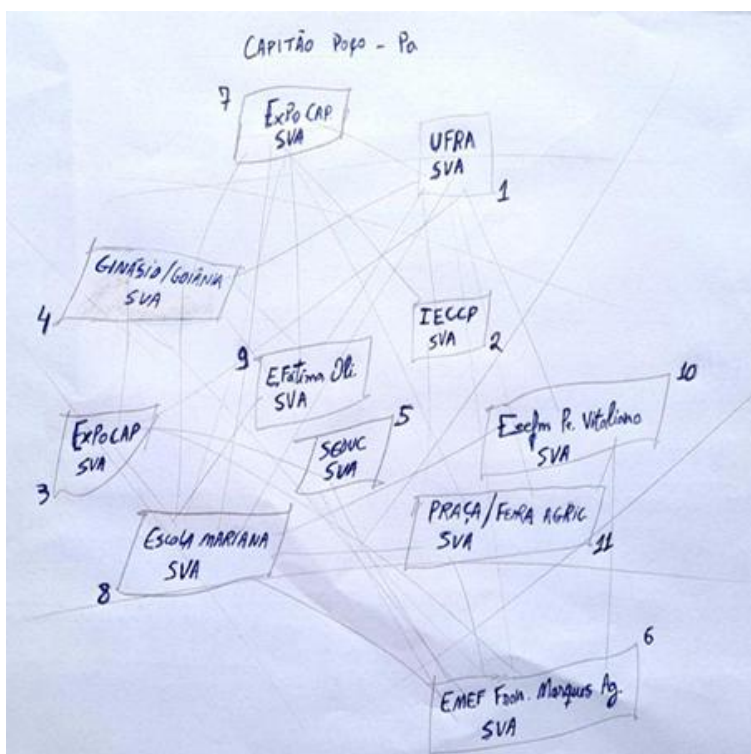 CAPITÃO POÇO - Pa
7
ExPoCAP
SVA
UFRA
SVA
1
GINÁSIO/GOIÂNIA
SVA
4
IECCP
SVA
2
9
E.Fátima Oli.
SVA
10
Escfm Pe. Vitaliano
SVA
ExPoCAP
SVA
3
5
SEDUC
SVA
PRAÇA/FEIRA AGRIC
SVA
11
EscolA MARIANA
SVA
8
6
EMEF Fran. Marques Ag.
SVA